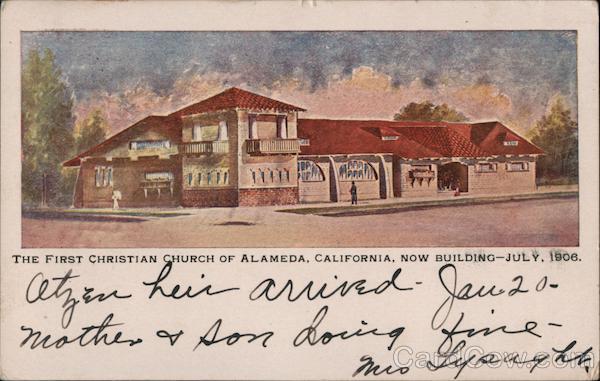 THE FIRST CHRISTIAN CHURCH OF ALAMEDA, CALIFORNIA, NOW BUILDING-JULY, 1906.
heir arrived - Jan 20 -
Mother & Son doing fine -
Mrs
CardCow.com